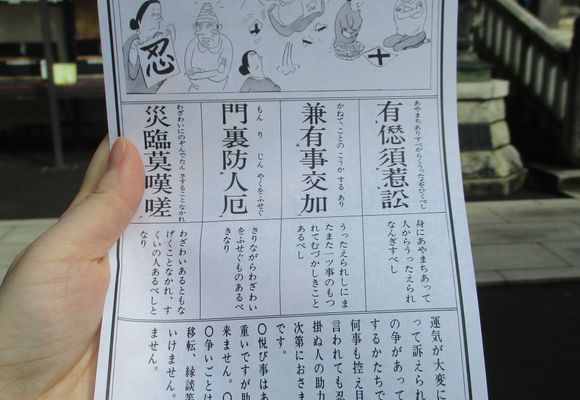 忍
あやまちありすべからくうったえをひくべし
有僁須惹訟
かねて ことの こうか する あり
兼有事交加
もん り じん やくをふせぐ
門裏防人厄
わざわいにのぞんでたんさすることなかれ
災臨莫嘆嗟
身にあやまちあって
人からうったえられ
なんぎすべし
うったえられしにま
たまた一ツ事のもつ
れてむづかしきこと
あるべし
さりながらわざわい
をふせぐものあるべ
きなり
わざわいあるともな
げくことなかれ、す
くいの人あるべしと
なり
運気が大変に
って訴えられ
の争があって
するかたちで
何事も控え目
言われても忍
掛ぬ人の助力
次第におさま
です。
〇悦び事はあ
重いですが助
来ません。〇
〇争いごとは
移転、縁談等
いけません。
ません。